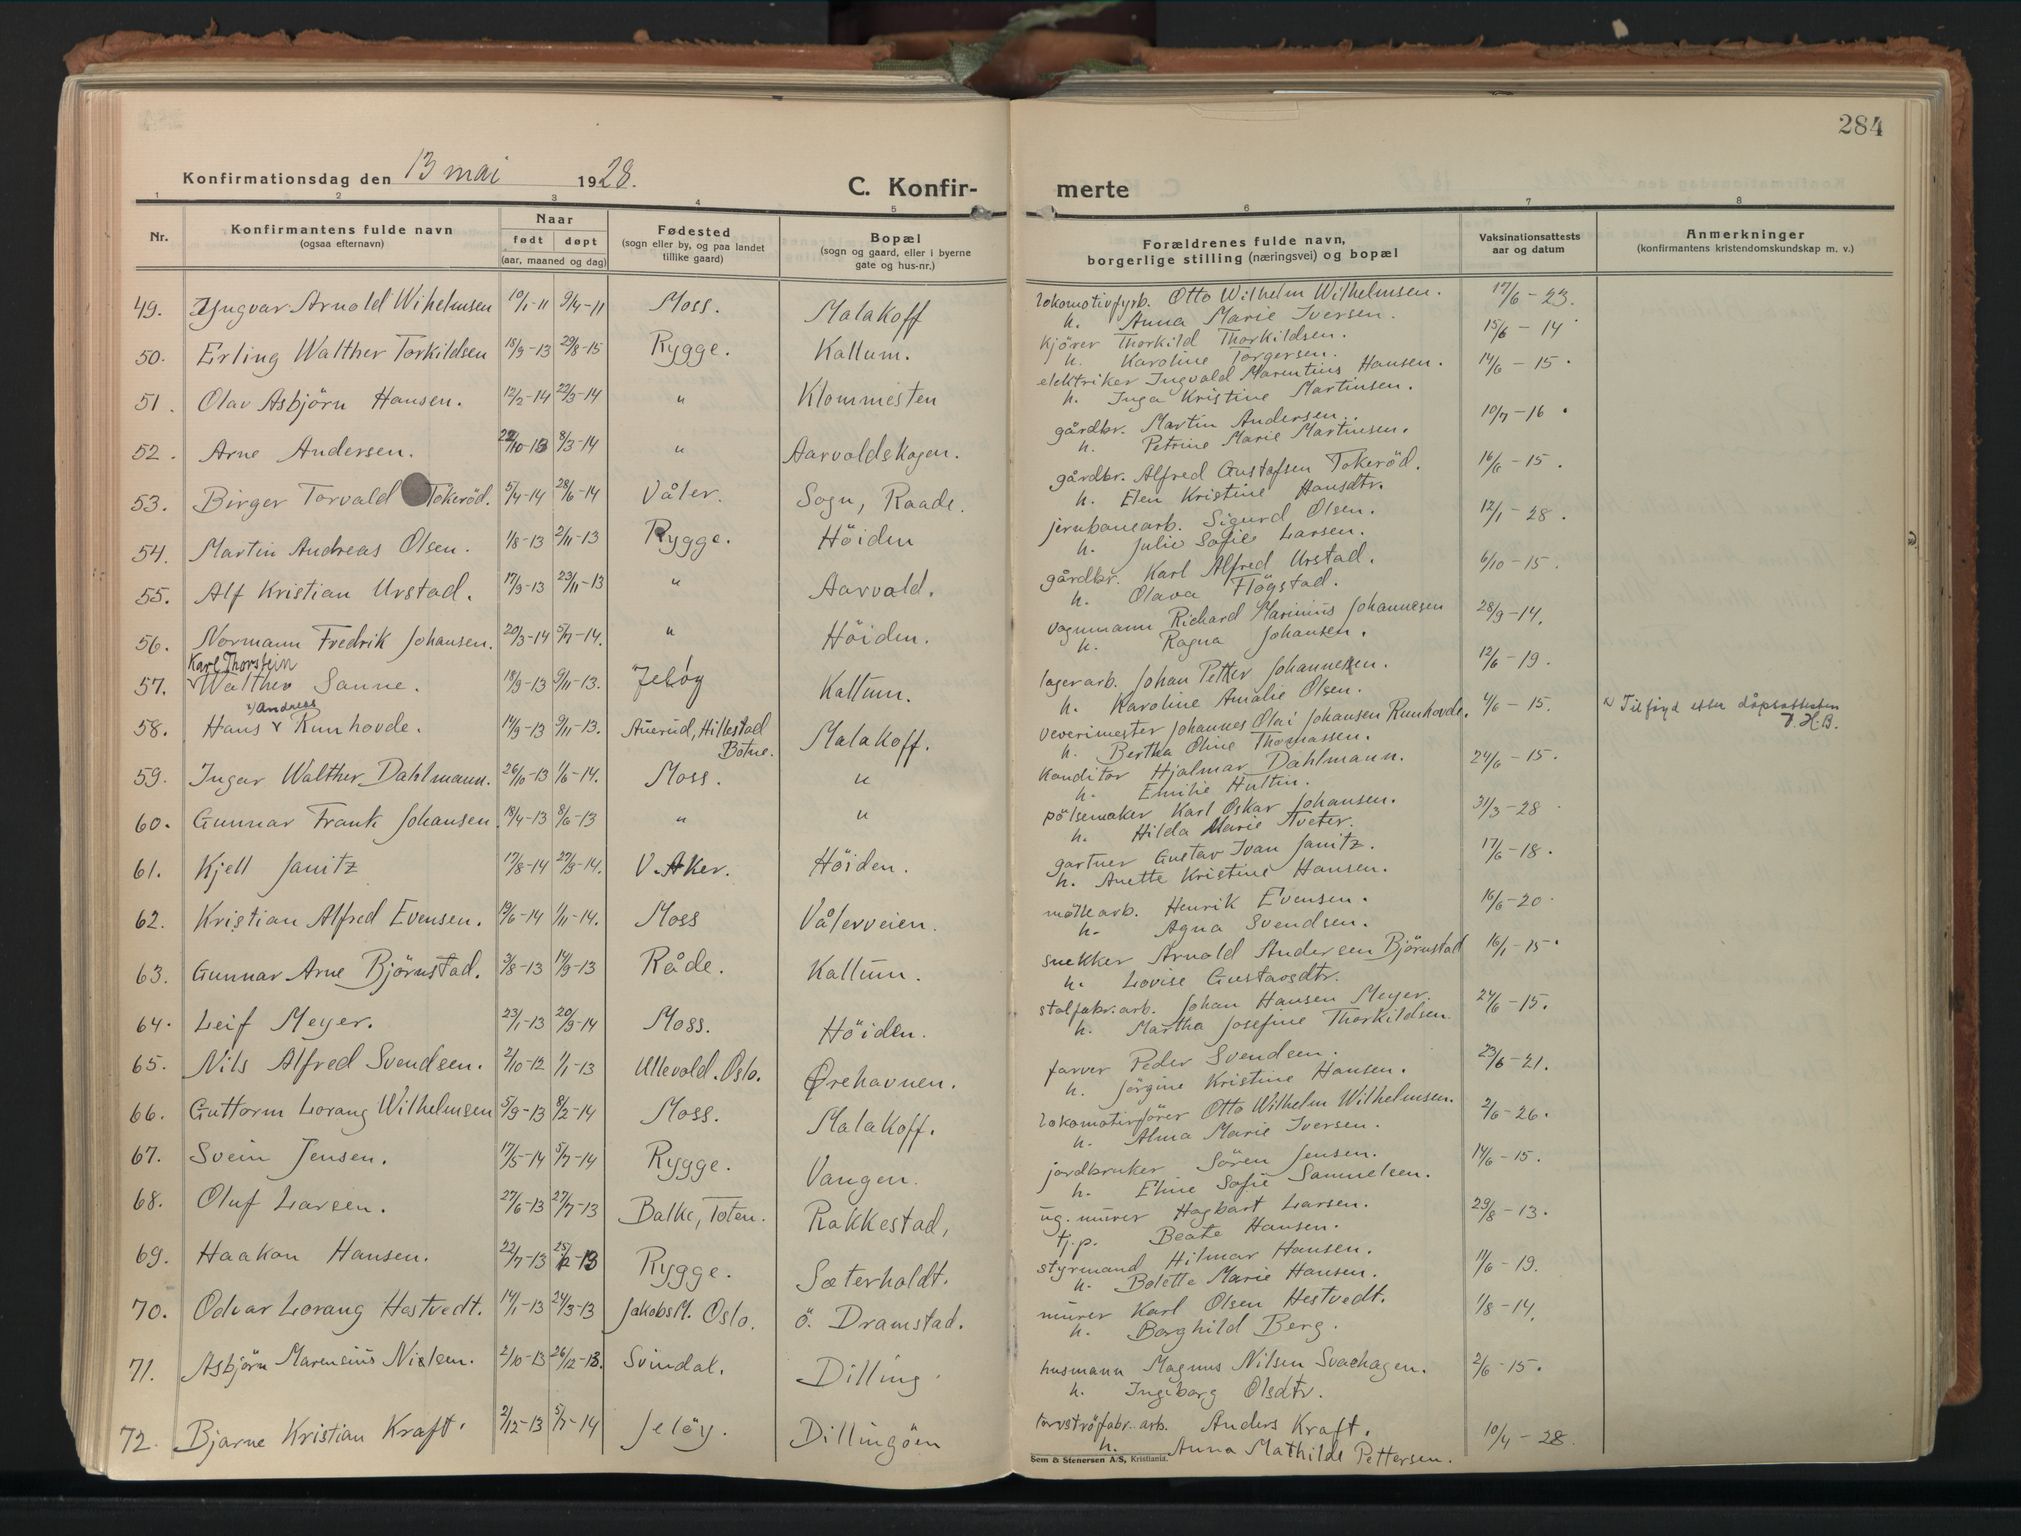 284
Konfirmationsdag den 13 mai 1928.
C. Konfir-
merte
1 2 3 4 5 6 7 8
Nr.
Konfirmantens fulde navn
(ogsaa efternavn)
Naar
født døpt
(aar, maaned og dag)
Fødested
(sogn eller by, og paa landet
tillike gaard)
Bopæl
(sogn og gaard, eller i byerne
gate og hus-nr.)
Forældrenes fulde navn,
borgerlige stilling (næringsvei) og bopæl
Vaksinationsattests
aar og datum
Anmerkninger
(konfirmantens kristendomskundskap m. v.)
49. Yngvar Arnold Wihelmsen 10/1-11 9/4-11 Moss. Malakoff lokomotivfyrb. Otto Wilhelm Wilhelmsen. 17/6-23.
h. Anna Marie Iversen.
50. Erling Walther Torkildsen 18/9-13 29/8-15 Rygge. Kallum. kjörer Thorkild Thorkildsen. 15/6-14
h. Karoline Torgersen.
51. Olav Asbjörn Hansen. 12/2-14 22/3-14 " Klommesten elektriker Ingvald Marentius Hansen. 14/6-15.
h. Inga Kristine Martinsen.
52. Arne Andersen. 22/10-13 8/3-14 " Aarvoldskogen. gårdbr. Martin Andersen. 10/7-16.
h. Petrine Marie Martinsen.
53. Birger Torvald Tokeröd. 5/4-14 28/6-14 Våler. Sogn, Raade. gårdbr. Alfred Gustafsen Tokeröd. 16/6-15.
h. Elen Kristine Hansdtr.
54. Martin Andreas Olsen. 1/8-13 2/11-13 Rygge. Höiden jernbanearb. Sigurd Olsen. 12/1-28.
h. Julie Sofie Larsen.
55. Alf Kristian Urstad. 17/9-13 23/11-13 " Aarvold. gårdbr. Karl Alfred Urstad. 6/10-15.
h. Olava Flögstad.
56. Normann Fredrik Johansen. 20/3-14 5/7-14. " Höiden. vognmann Richard Marinius Johannesen 28/9-14.
h. Ragna Johansen.
Karl Thorstein
57. Walther Sanne. 18/9-13 9/11-13. Jeløy Kallum. lagerarb. Johan Petter Johannesen. 12/6-19.
h. Karoline Amalie Olsen.
Andreas
58. Hans Runhovde. 14/9-13 9/11-13. Auerud, Hillestad Botne. Malakoff. veverimester Johannes Olai Johansen Runhovde. 4/6-15. Tilføyd etter dåpsattesten
H.B.
h. Bertha Oline Thomassen.
59. Ingar Walther Dahlmann. 26/10-13 1/6-14. Moss. " konditor Hjalmar Dahlmann. 24/6-15.
h. Emilie Hultin.
60. Gunnar Frank Johansen. 18/4-13 8/6-13 " " pölsemaker Karl Oskar Johansen. 31/3-28
h. Hilda Marie Tveter.
61. Kjell Janitz 17/8-14 27/9-14. V. Aker. Höiden. gartner Gustav Ivan Janitz. 17/6-18.
h. Anette Kristine Hansen.
62. Kristian Alfred Evensen. 19/6-14 1/11-14. Moss Vålerveien. möllearb. Henrik Evensen. 16/6-20.
h. Agna Svendsen.
63. Gunnar Arne Björnstad. 3/8-13 14/9-13 Råde. Kallum. snekker Arnold Andersen Björnstad 16/1-15.
h. Lovise Gustavsdtr.
64. Leif Meyer. 23/1-13 20/9-14 Moss. Höiden. stolfabr.arb. Johan Hansen Meyer. 24/6-15.
h. Martha Josefine Thorkildsen.
65. Nils Alfred Svendsen. 2/10-12 1/1-13 Ullevold. Oslo. Ørehavnen. farver Peder Svendsen. 23/6-21.
h. Jörgine Kristine Hansen.
66. Guttorm Lorang Wilhelmsen 5/9-13 8/2-14 Moss. Malakoff. lokomotivförer Otto Wilhelm Wilhelmsen. 2/6-26.
h. Alma Marie Iversen.
67. Svein Jensen. 17/5-14 5/7-14 Rygge. Vangen. jordbruker Sören Jensen. 14/6-15.
h. Eline Sofie Samuelsen.
68. Oluf Larsen. 27/6-13 27/7-13 Balke, Toten. Rakkestad, ug. murer Hagbart Larsen. 29/8-13.
tj.p. Beate Hansen.
69. Haakon Hansen. 22/7-13 25/12-13 Rygge. Sæterholdt. styrmand Hilmar Hansen. 11/6-19.
h. Bolette Marie Hansen.
70. Odvar Lorang Hestvedt. 14/1-13 24/3-13 Jakobs M. Oslo. ö. Dramstad. murer Karl Olsen Hestvedt. 1/8-14.
h. Borghild Berg.
71. Asbjörn Marensius Nielsen. 2/10-13 26/12-13. Svindal. Dilling. husmann Magnus Nilsen Svaehagen. 2/6-15.
h. Ingeborg Olsdtr.
72. Bjarne Kristian Kraft. 2/12-13 5/7-14 Jeløy. Dillingöen torvströfabr. arb. Anders Kraft. 10/4-28.
h. Anna Mathilde Pettersen.
Sem & Stenersen A/S, Kristiania.